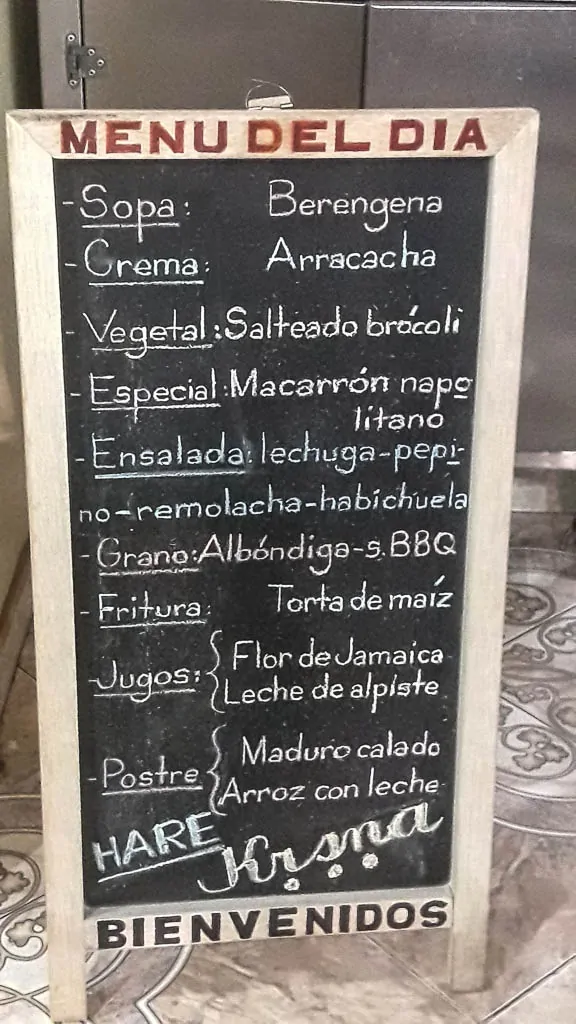 MENU DEL DIA
-Sopa: Berengena
-Crema: Arracacha
-Vegetal:Salteado brócoli
-Especial:Macarrón napo
litano
-Ensalada:lechuga-pepi-
no-remolacha-habichuela
-Grano:Albóndiga-s.BBQ
-Fritura: Torta de maíz
-Jugos:{ Flor de Jamaica
Leche de alpiste
-Postre { Maduro calado
Arroz con leche
HARE Krsna
BIENVENIDOS